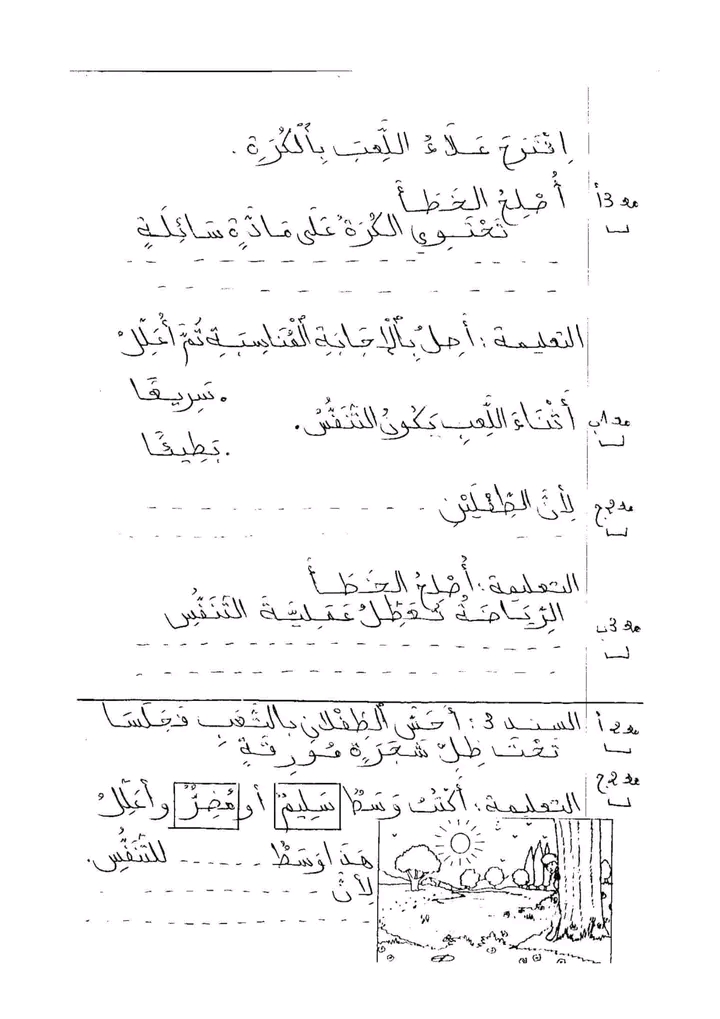 اِقْتَرَحَ عَلَاءُ اللَّعِبَ بِالْكُرَةِ .
مع 3 أ
أُصْلِحُ الخَطَأَ
تَحْتَوِي الكُرَةُ عَلَى مَادَّةٍ سَائِلَةٍ
التعليمة : أَصِلُ بِالْإِجَابَةِ الْمُنَاسِبَةِ ثُمَّ أُعَلِّلُ
. سَرِيعًا
مع 1ب
أَثْنَاءَ اللَّعِبِ يَكُونُ التَّنَفُّسُ .
. بَطِيئًا
مع 2 ج
لِأَنَّ الطِّفْلَيْنِ
التعليمة : أُصْلِحُ الخَطَأَ
مع 3 ب
الرِّيَاضَةُ تُعَطِّلُ عَمَلِيَّةَ التَّنَفُّسِ
مع 2 أ
السند 3 : أَحَسَّ الطِّفْلَانِ بِالتَّعَبِ فَجَلَسَا
تَحْتَ ظِلِّ شَجَرَةٍ مُورِقَةٍ
مع 2 ج
التعليمة : أَكْتُبُ وَسَطٌ سَلِيمٌ أو مُضِرٌّ وأُعَلِّلُ
هَذَا وَسَطٌ ــ ــ ــ ــ للتَّنَفُّسِ.
لِأَنَّ